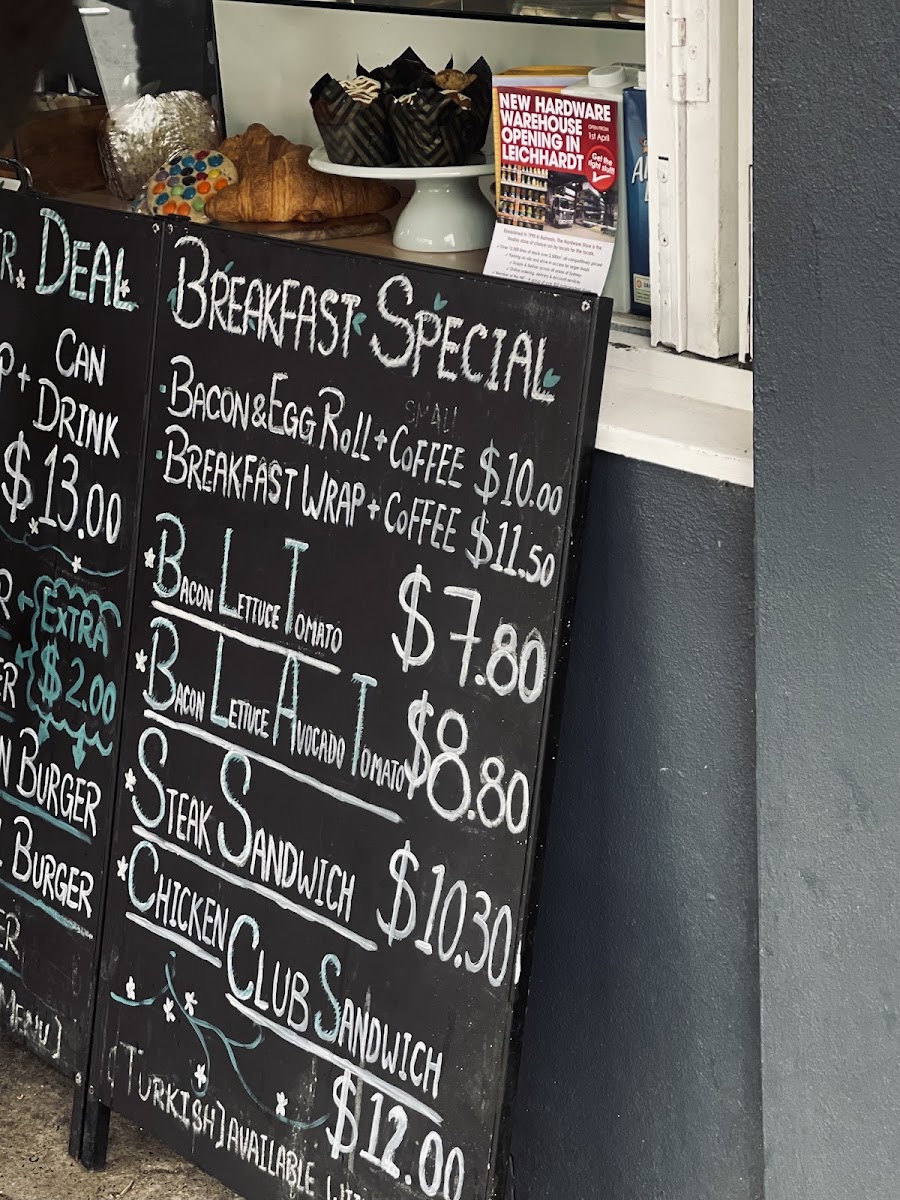 NEW HARDWARE
WAREHOUSE
OPENING IN
LEICHHARDT
OPEN FROM
1st April
Get the
right stuff!
DEAL
CAN
+ DRINK
$13.00
EXTRA
$2.00
BURGER
BURGER
MENU)
BREAKFAST SPECIAL
SMALL
BACON & EGG ROLL + COFFEE $10.00
BREAKFAST WRAP + COFFEE $11.50
BACON LETTUCE TOMATO $7.80
BACON LETTUCE AVOCADO TOMATO $8.80
STEAK SANDWICH $10.30
CHICKEN CLUB SANDWICH
$12.00
(TURKISH) AVAILABLE